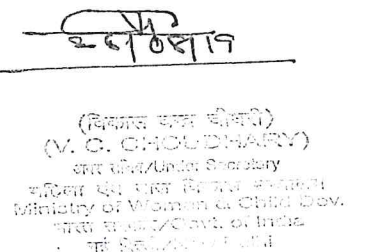 26/08/19
(विकास चन्द्र चौधरी)
(V. C. CHOUDHARY)
अवर सचिव/Under Secretary
महिला एवं बाल विकास मंत्रालय
Ministry of Women & Child Dev.
भारत सरकार/Govt. of India
नई दिल्ली/New Delhi